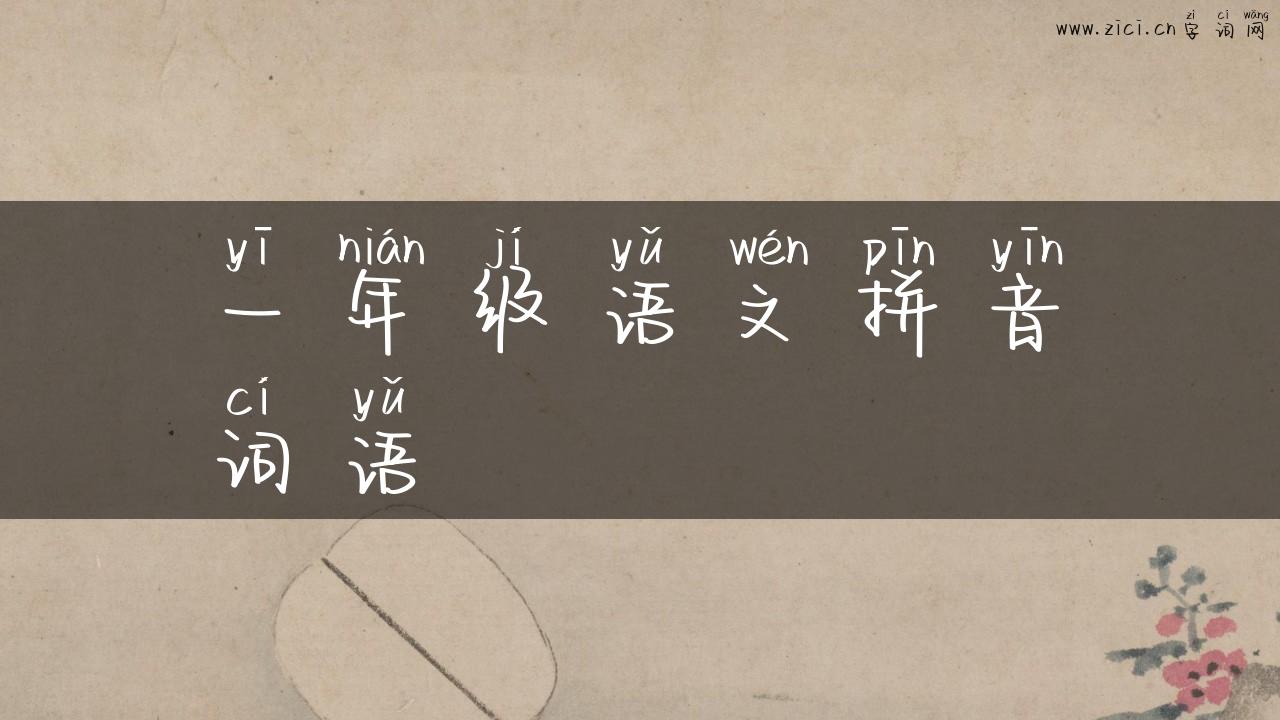 zì cí wǎng
www.zici.cn 字词网
yī nián jí yǔ wén pīn yīn
一年级语文拼音
cí yǔ
词语